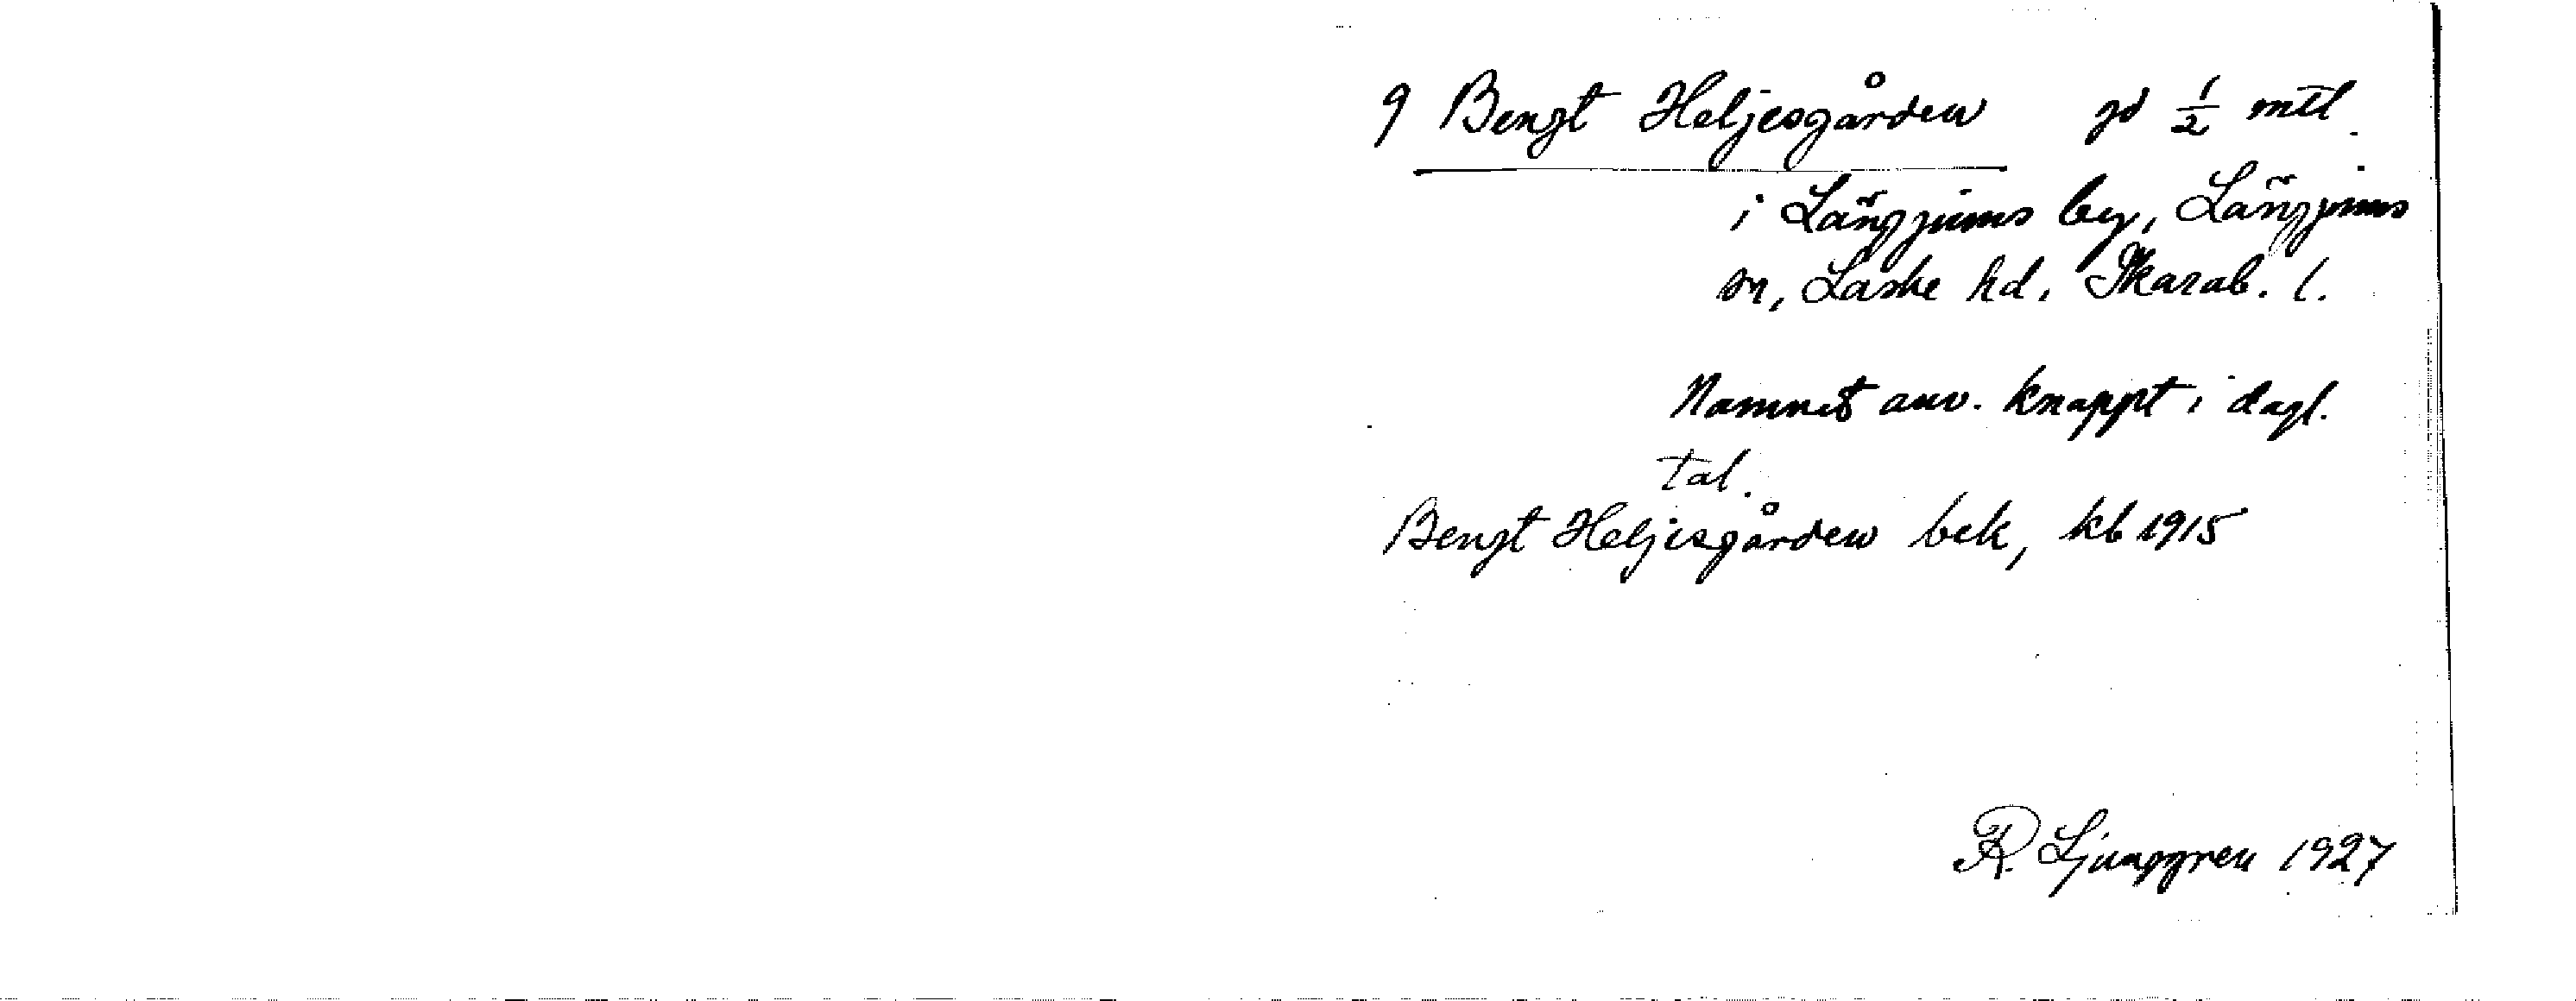 9 Bengt Heljesgården gd 1/2 mtl.
i Längjums by, Längjums
sn, Laske hd. Skarab. l.
Namnet anv. knappt i dagl.
tal.
Bengt Heljesgården bek, kb 1915
R. Ljunggren 1927